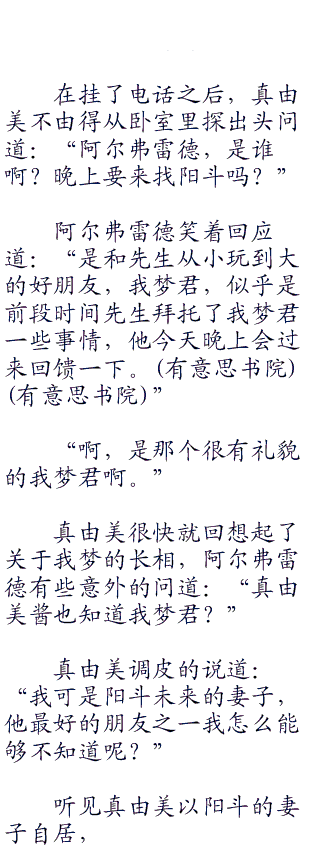 在挂了电话之后，真由
美不由得从卧室里探出头问
道：“阿尔弗雷德，是谁
啊？晚上要来找阳斗吗？”
阿尔弗雷德笑着回应
道：“是和先生从小玩到大
的好朋友，我梦君，似乎是
前段时间先生拜托了我梦君
一些事情，他今天晚上会过
来回馈一下。(有意思书院)
(有意思书院)”
“啊，是那个很有礼貌
的我梦君啊。”
真由美很快就回想起了
关于我梦的长相，阿尔弗雷
德有些意外的问道：“真由
美酱也知道我梦君？”
真由美调皮的说道：
“我可是阳斗未来的妻子，
他最好的朋友之一我怎么能
够不知道呢？”
听见真由美以阳斗的妻
子自居，